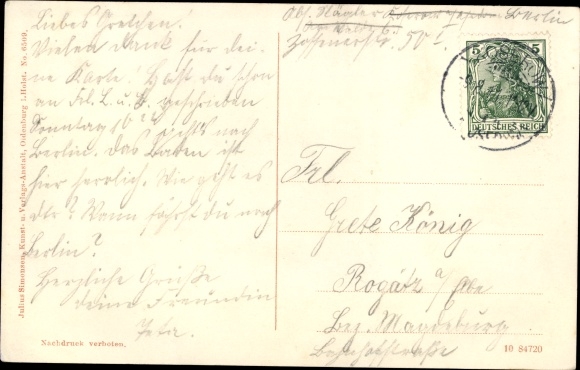 Liebes Gretchen!
Vielen Dank für dei-
ne Karte! Hast du schon
an Frl. L. u. B. geschrieben
Sonntag nach
Berlin. Das Baden ist
hier herrlich. Wie geht es
dir? Wann fährst du nach
Berlin?
Herzliche Grüße
deine Freundin
Abs. Berlin
Zossenerstr. 50 I.
5 5
DEUTSCHES REICH
Frl.
Grete König
Rogätz a/Elbe
Bez. Magdeburg
Bahnhofstraße
Julius Simonsen, Kunst- u. Verlags-Anstalt, Oldenburg i. Holst. No. 6509.
Nachdruck verboten.
10 84720